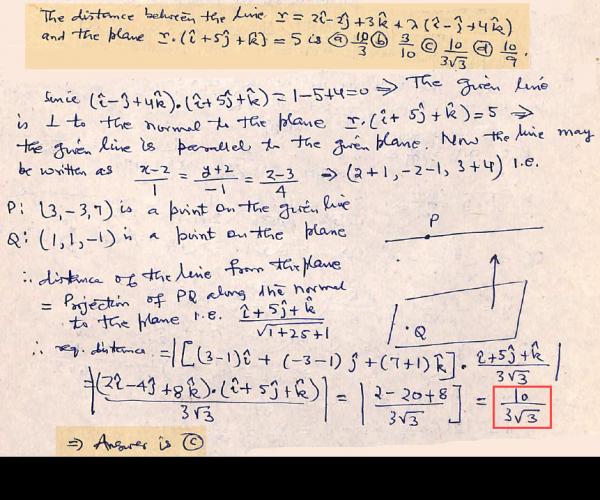 The distance between the line r = 2î-2ĵ+3k̂+λ(î-ĵ+4k̂)
and the plane r.(î+5ĵ+k̂)=5 is ⓐ 10/3 ⓑ 3/10 ⓒ 10/3√3 ⓓ 10/9.
Since (î-ĵ+4k̂).(î+5ĵ+k̂)=1-5+4=0 ⇒ The given line
is ⊥ to the normal to the plane r.(î+5ĵ+k̂)=5 ⇒
the given line is parallel to the given plane. Now the line may
be written as x-2/1 = y+2/-1 = z-3/4 ⇒ (2+1, -2-1, 3+4) i.e.
P: (3,-3,7) is a point on the given line
Q: (1,1,-1) is a point on the plane
P
∴ distance of the line from the plane
= Projection of PQ along the normal
to the plane i.e. î+5ĵ+k̂/√1+25+1
Q
∴ req. distance = |[(3-1)î + (-3-1)ĵ + (7+1)k̂] . î+5ĵ+k̂/3√3|
= |(2î-4ĵ+8k̂).(î+5ĵ+k̂)/3√3| = |2-20+8/3√3] = 10/3√3
⇒ Answer is ⓒ